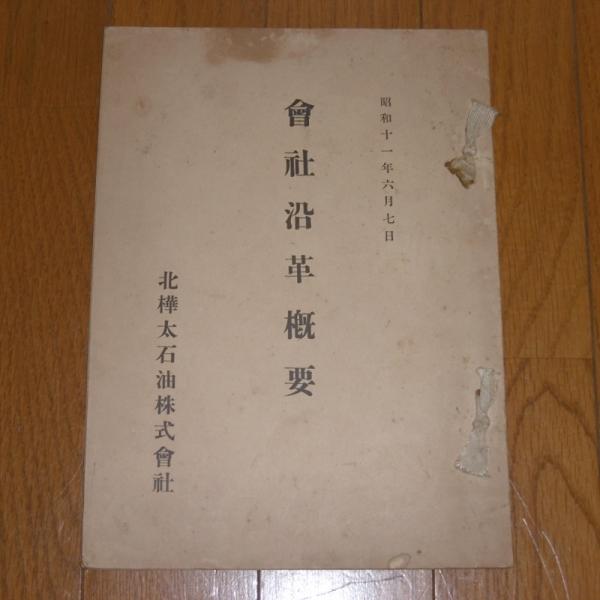 昭和十一年六月七日
會社沿革概要
北樺太石油株式會社